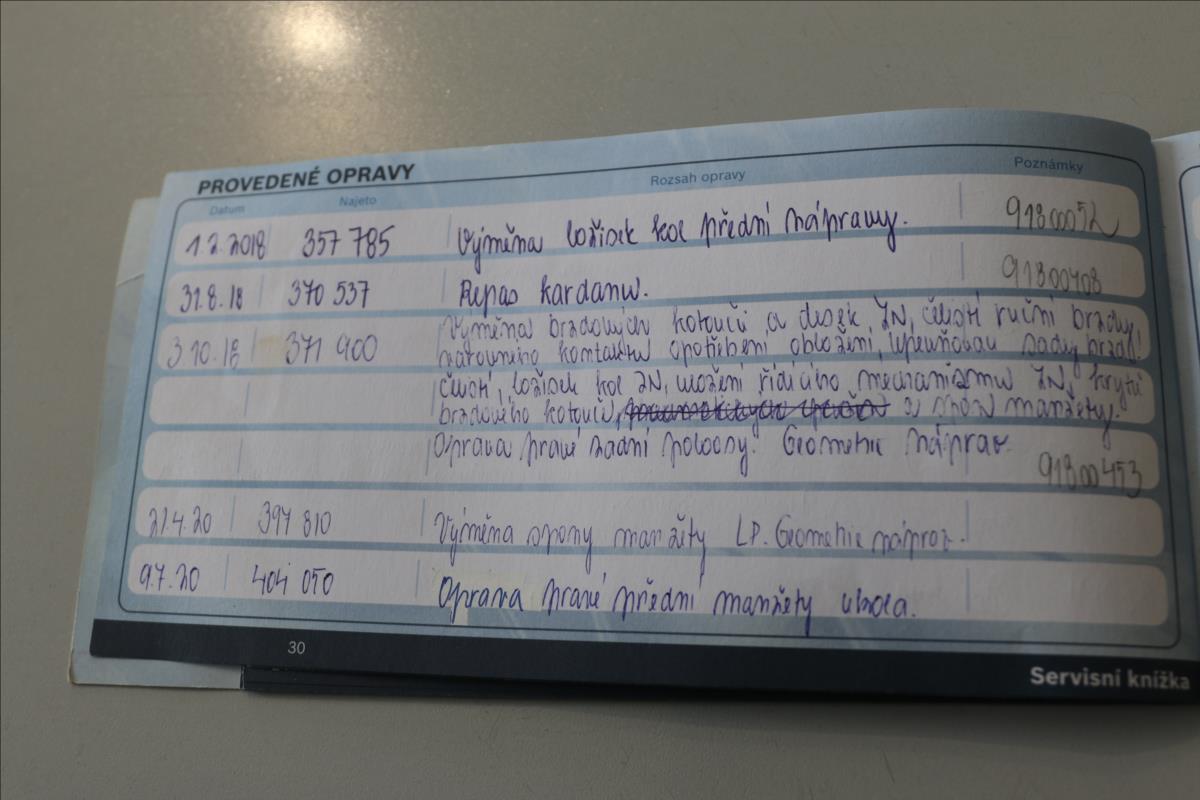 PROVEDENÉ OPRAVY
Datum Najeto Rozsah opravy Poznámky
1.2.2018 357 785 Výměna ložisek kol přední nápravy. 91800052
31.8.18 370 537 Repas kardanu. 91800408
3.10.18 371 900 Výměna brzdových kotoučů a desek ZN, čelistí ruční brzdy,
kontaktu opotřebení obložení, sady brzd.
čelistí, ložisek kol ZN, uložení řídícího mechanizmu ZN, krytu
brzdového kotouče, a manžety.
Oprava pravé zadní poloosy. Geometrie náprav. 91800453
21.4.20 397 810 Výměna spony manžety LP. Geometrie náprav.
9.7.20 404 050 Oprava pravé přední manžety
30
Servisní knížka